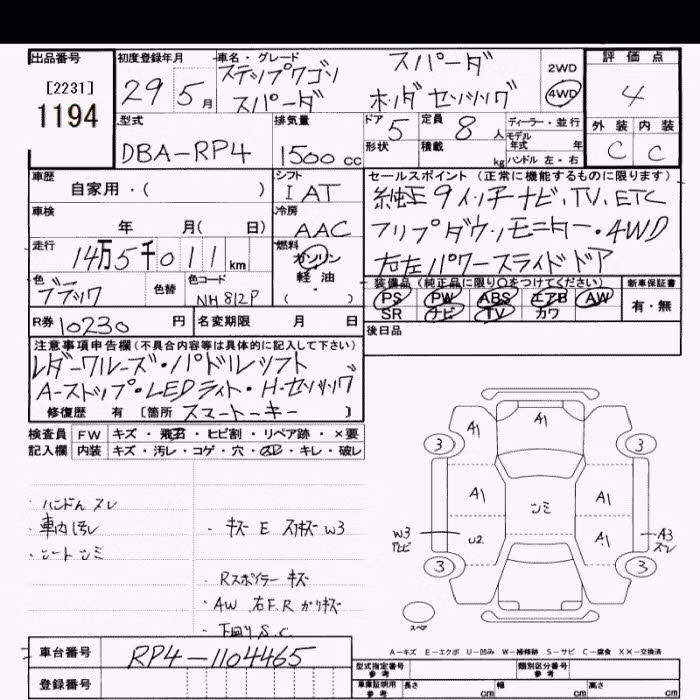 出品番号
[2231]
1194
初度登録年月
29 5 月
車名・グレード
ステップワゴン スパーダ
スパーダ ホンダセンシング
2WD
4WD
評価点
4
外装 内装
C C
型式
DBA-RP4
排気量
1500 cc
ドア 5
形状
定員 8 人
積載 kg
ディーラー・並行
モデル年式 年
ハンドル 左・右
車歴
自家用・( )
シフト
IAT
セールスポイント(正常に機能するものに限ります)
純正9インチナビ、TV、ETC
フリップダウンモニター・4WD
右左パワースライドドア
車検
年 月( 日)
冷房
AAC
走行
14万5千011 km
燃料
ガソリン
軽油
( ・ )
色
ブラック
色替
色コード
NH812P
装備品(純正品に限り○をつけてください)
PS PW ABS エアB AW
SR ナビ TV カワ
新車保証書
有・無
R券 10230 円
名変期限 月 日
後日品
注意事項申告欄(不具合内容等は具体的に記入して下さい)
レダークルーズ・パドルシフト
A-ストップ・LEDライト・H-センシング
修復歴 有 [箇所 スマートーキー ]
検査員 FW キズ・飛石・ヒビ割・リペア跡・×要
記入欄 内装 キズ・汚レ・コゲ・穴・・キレ・破レ
・ハンドルスレ
・車内汚レ
・シートシミ
・キズ E スリキズ W3
・Rスポイラーキズ
・AW 右F.R ガリキズ
・下回りS.C.
A1
A1
3
3
A1
シミ
A1
W3
U2
A1
A3
スレ
3
3
スペア
A-キズ E-エクボ U-凹み W-補修跡 S-サビ C-腐食 XX-交換済
車台番号
RP4-1104465
登録番号
型式指定番号
参考
類別区分番号
参考
車庫証明用
参考
長さ cm
幅 cm
高さ cm